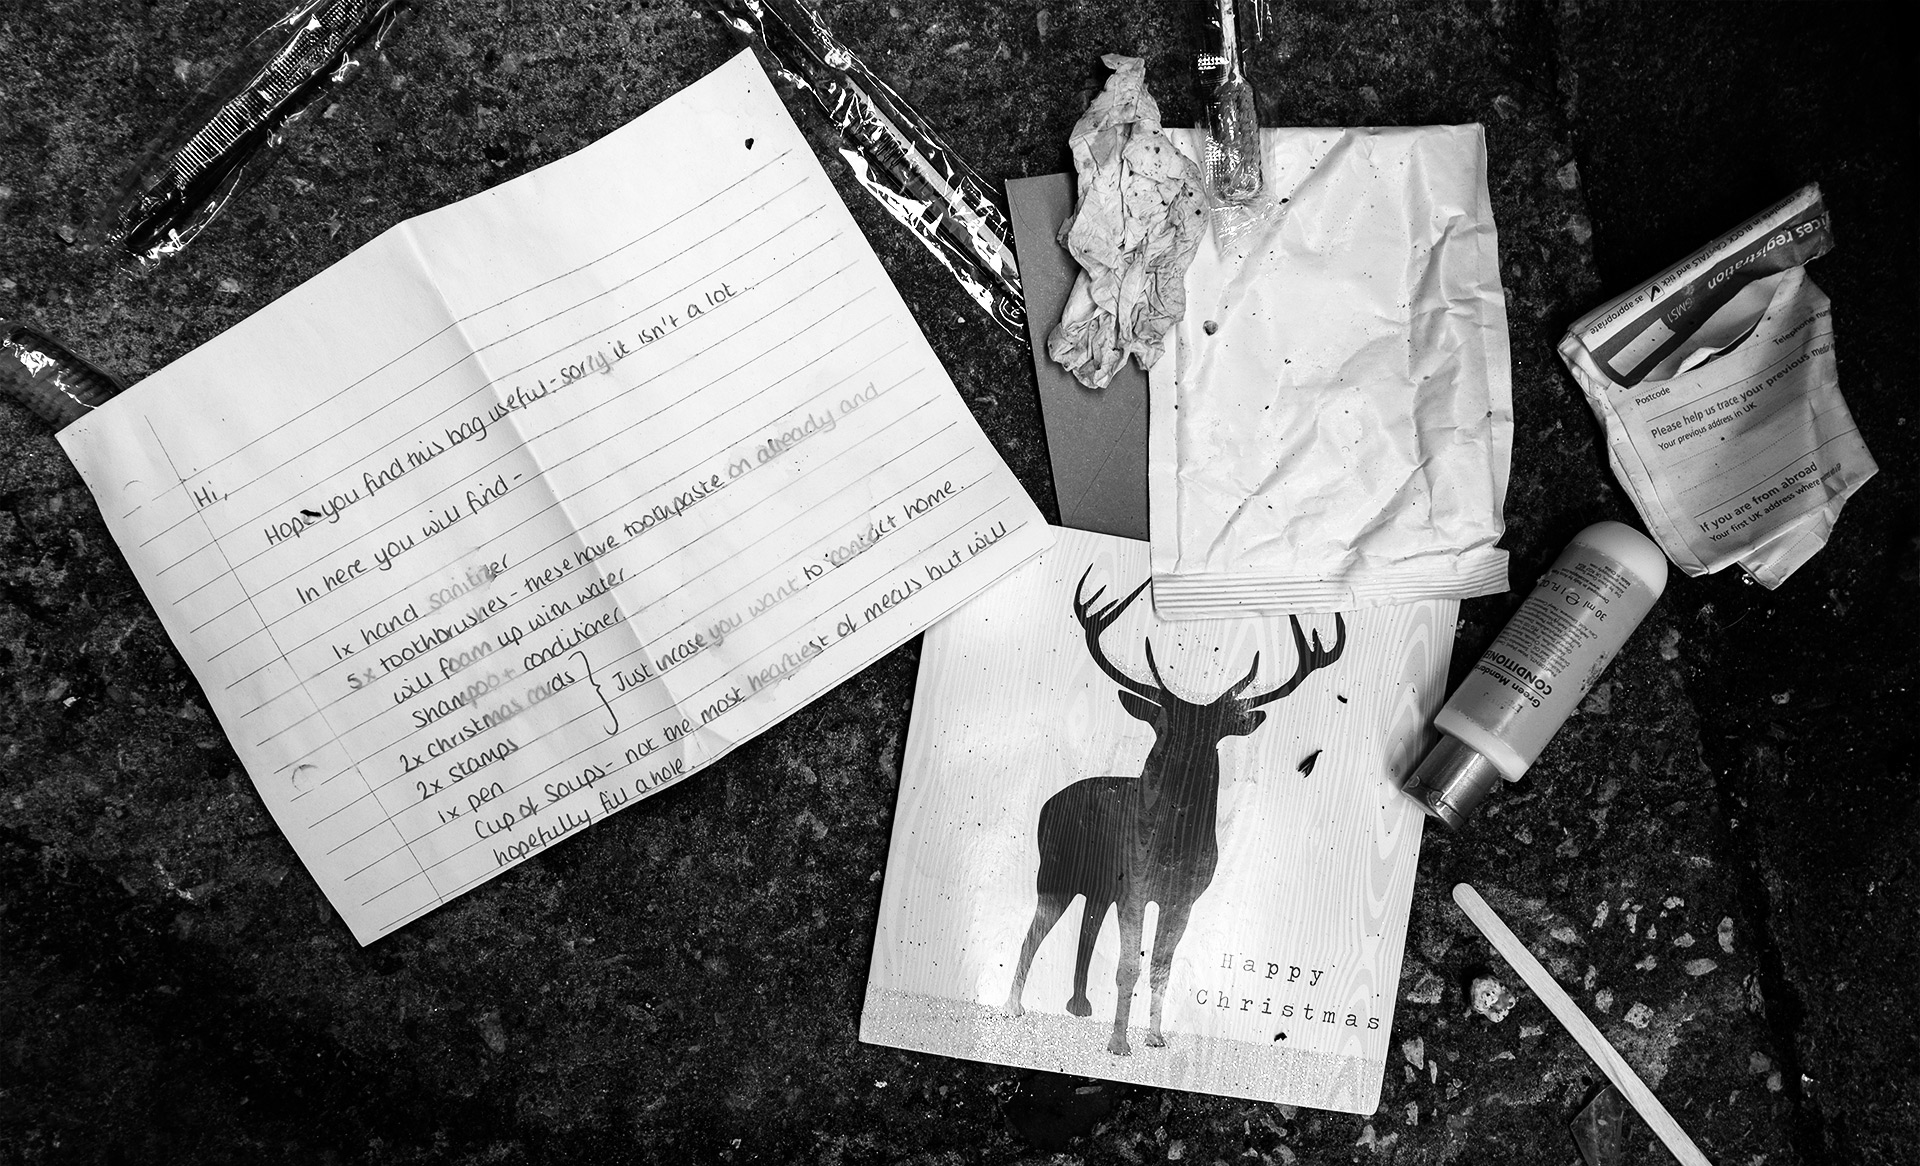 Hi,
Hope you find this bag useful - sorry it isn't a lot.
In here you will find -
1x hand sanitizer
5x toothbrushes - these have toothpaste on already and
will foam up with water.
Shampoo + conditioner
2x Christmas cards } Just incase you want to contact home.
2x stamps
1x pen
Cup of soups - not the most heartiest of meals but will
hopefully fill a hole.
Happy
Christmas
CONDITIONER
30 ml
ices registration
GMS1
as appropriate
Postcode
Please help us trace your previous
Your previous address in UK
If you are from abroad
Your first UK address where